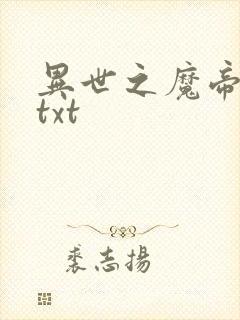 異世之魔帝
txt
裘志揚